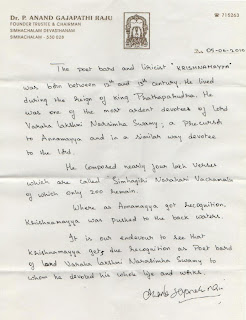 Dr. P. ANAND GAJAPATHI RAJU
FOUNDER TRUSTEE & CHAIRMAN
SIMHACHALAM DEVASTHANAM
SIMHACHALAM - 530 028
☎ 715263
The poet bard and lyricist "KRISHNAMAYYA"
was born between 12th and 13th century. He lived
during the Reign of King Prathaparudra, He
was one of the most ardent devotees of Lord
Varaha Lakshmi Narsimha Swamy; a Precursor
to Annamayya and in a similar way devotee
to the lord.
He Composed nearly four lakh Verses
which are called Simhagiri Narahari Vachamalu
of which only 200 remain.
Where as Annamayya got recognition,
Krishnamayya was pushed to the back waters.
It is our endeavour to see that
Krishnamayya gets due Recognition as Poet bard
of lord Varaha lakshmi Narasimha Swamy to
whom he devoted his whole life and works.